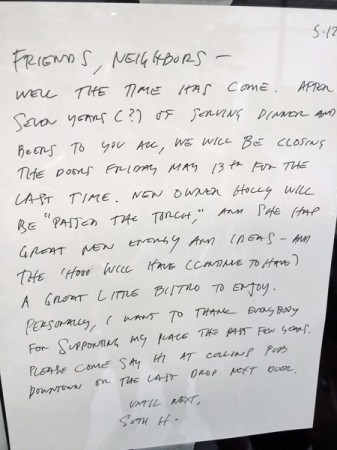 5-12
FRIENDS, NEIGHBORS —
WELL THE TIME HAS COME. AFTER
SEVEN YEARS (?) OF SERVING DINNER AND
BEERS TO YOU ALL, WE WILL BE CLOSING
THE DOORS FRIDAY MAY 13TH FOR THE
LAST TIME. NEW OWNER HOLLY WILL
BE "PASSED THE TORCH," AND SHE HAS
GREAT NEW ENERGY AND IDEAS - AND
THE 'HOOD WILL HAVE (CONTINUE TO HAVE)
A GREAT LITTLE BISTRO TO ENJOY.
PERSONALLY, I WANT TO THANK EVERYBODY
FOR SUPPORTING MY PLACE THE PAST FEW YEARS.
PLEASE COME SAY HI AT COLLINS PUB
DOWNTOWN OR THE LAST DROP NEXT DOOR.
UNTIL NEXT,
SETH H-